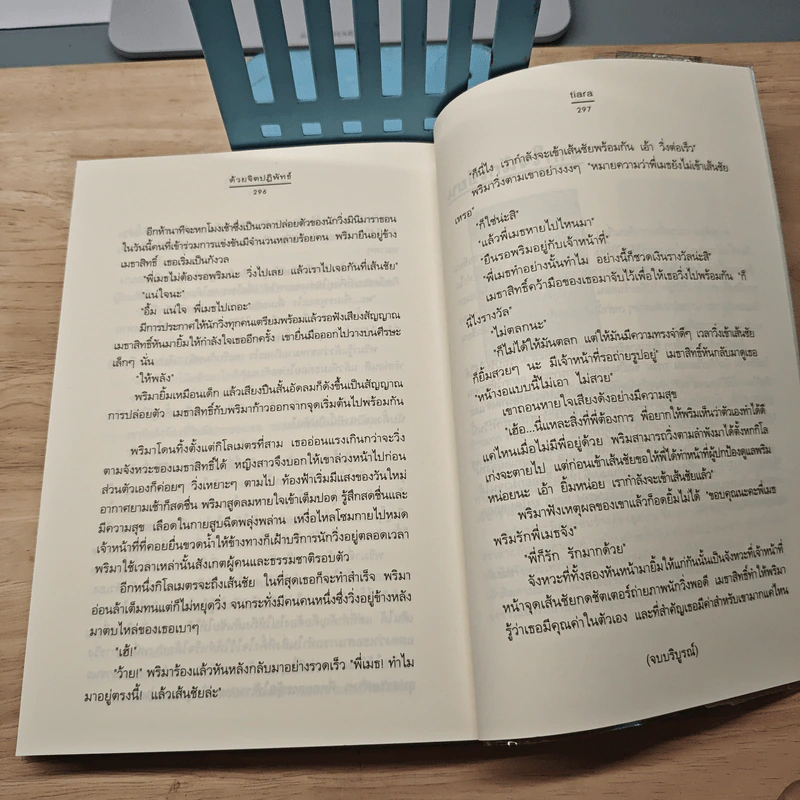 ด้วยจิตปฏิพัทธ์
296
อีกห้านาทีจะหกโมงเช้าซึ่งเป็นเวลาปล่อยตัวของนักวิ่งมินิมาราธอน
ในวันนี้คนที่เข้าร่วมการแข่งขันมีจำนวนหลายร้อยคน พริมายืนอยู่ข้าง
เมธาสิทธิ์ เธอเริ่มเป็นกังวล
"พี่เมธไม่ต้องรอพริมนะ วิ่งไปเลย แล้วเราไปเจอกันที่เส้นชัย"
"แน่ใจนะ"
"อื้ม แน่ใจ พี่เมธไปเถอะ"
มีการประกาศให้นักวิ่งทุกคนเตรียมพร้อมแล้วรอฟังเสียงสัญญาณ
เมธาสิทธิ์หันมายิ้มให้กำลังใจเธออีกครั้ง เขายื่นมือออกไปวางบนศีรษะ
เล็กๆ นั่น
"ให้พลัง"
พริมายิ้มเหมือนเด็ก แล้วเสียงปืนสั้นอัดลมก็ดังขึ้นเป็นสัญญาณ
การปล่อยตัว เมธาสิทธิ์กับพริมาก้าวออกจากจุดเริ่มต้นไปพร้อมกัน
พริมาโดนทิ้งตั้งแต่กิโลเมตรที่สาม เธออ่อนแรงเกินกว่าจะวิ่ง
ตามจังหวะของเมธาสิทธิ์ได้ หญิงสาวจึงบอกให้เขาล่วงหน้าไปก่อน
ส่วนตัวเองก็ค่อยๆ วิ่งเหยาะๆ ตามไป ท้องฟ้าเริ่มมีแสงของวันใหม่
อากาศยามเช้าก็สดชื่น พริมาสูดลมหายใจเข้าเต็มปอด รู้สึกสดชื่นและ
มีความสุข เลือดในกายสูบฉีดพลุ่งพล่าน เหงื่อไหลโซมกายไปหมด
เจ้าหน้าที่ที่คอยยื่นขวดน้ำให้ข้างทางก็เฝ้าบริการนักวิ่งอยู่ตลอดเวลา
พริมาใช้เวลาเหล่านั้นสังเกตผู้คนและธรรมชาติรอบตัว
อีกหนึ่งกิโลเมตรจะถึงเส้นชัย ในที่สุดเธอก็จะทำสำเร็จ พริมา
อ่อนล้าเต็มทนแต่ก็ไม่หยุดวิ่ง จนกระทั่งมีคนคนหนึ่งซึ่งวิ่งอยู่ข้างหลัง
มาตบไหล่ของเธอเบาๆ
"เฮ้!"
"ว้าย!" พริมาร้องแล้วหันหลังกลับมาอย่างรวดเร็ว "พี่เมธ! ทำไม
มาอยู่ตรงนี้! แล้วเส้นชัยล่ะ"
tiara
297
"ก็นี่ไง เรากำลังจะเข้าเส้นชัยพร้อมกัน เอ้า วิ่งต่อเร็ว"
พริมาวิ่งตามเขาอย่างงงๆ "หมายความว่าพี่เมธยังไม่เข้าเส้นชัย
เหรอ"
"ก็ใช่น่ะสิ"
"แล้วพี่เมธหายไปไหนมา"
"ยืนรอพริมอยู่กับเจ้าหน้าที่"
"พี่เมธทำอย่างนั้นทำไม อย่างนี้ก็ชวดเงินรางวัลน่ะสิ"
เมธาสิทธิ์คว้ามือของเธอมาจับไว้เพื่อให้เธอวิ่งไปพร้อมกัน "ก็
นี่ไงรางวัล"
"ไม่ตลกนะ"
"ก็ไม่ได้ให้มันตลก แต่ให้มันมีความทรงจำดีๆ เวลาวิ่งเข้าเส้นชัย
ก็ยิ้มสวยๆ นะ มีเจ้าหน้าที่รอถ่ายรูปอยู่" เมธาสิทธิ์หันกลับมาดูเธอ
"หน้างอแบบนี้ไม่เอา ไม่สวย"
เขาถอนหายใจเสียงดังอย่างมีความสุข
"เฮ้อ...นี่แหละสิ่งที่พี่ต้องการ พี่อยากให้พริมเห็นว่าตัวเองทำได้ดี
แค่ไหนเมื่อไม่มีพี่อยู่ด้วย พริมสามารถวิ่งตามลำพังมาได้ตั้งหกกิโล
เก่งจะตายไป แต่ก่อนเข้าเส้นชัยขอให้พี่ได้ทำหน้าที่ผู้ปกป้องดูแลพริม
หน่อยนะ เอ้า ยิ้มหน่อย เรากำลังจะเข้าเส้นชัยแล้ว"
พริมาฟังเหตุผลของเขาแล้วก็อดยิ้มไม่ได้ "ขอบคุณนะคะพี่เมธ
พริมรักพี่เมธจัง"
"พี่ก็รัก รักมากด้วย"
จังหวะที่ทั้งสองหันหน้ามายิ้มให้แก่กันนั้นเป็นจังหวะที่เจ้าหน้าที่
หน้าจุดเส้นชัยกดชัตเตอร์ถ่ายภาพนักวิ่งพอดี เมธาสิทธิ์ทำให้พริมา
รู้ว่าเธอมีคุณค่าในตัวเอง และที่สำคัญเธอมีค่าสำหรับเขามากแค่ไหน
(จบบริบูรณ์)